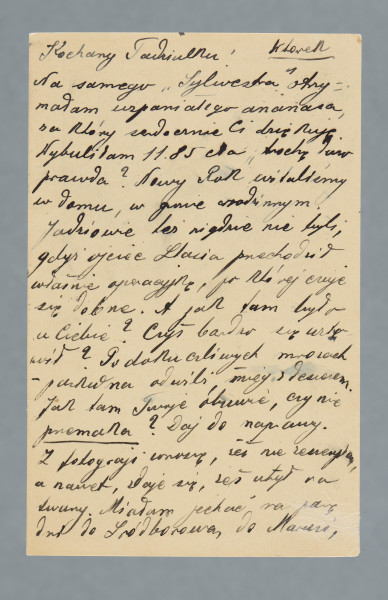 Kochany Tadziulku! Wtorek
Na samego „Sylwestra" otrzy-
małam wspaniałego ananasa,
za który serdecznie Ci dziękuję.
Wybuliłam 11.85 cła „trochę" co
prawda? Nowy Rok witaliśmy
w domu, w gronie rodzinnym.
Jadziowie też nigdzie nie byli,
gdyż ojciec Stasia przechodził
właśnie operacyjkę, po której czuje
się dobrze. A jak tam było
u Ciebie? Czyś bardzo się
? Po dokuczliwych mrozach
przyszła odwilż śnieg z deszczem.
Jak tam Twoje obuwie, czy nie
przemaka? Daj do naprawy.
Z fotografji wnoszę, żeś nie zeszczuplał,
a nawet, zdaje się, żeś utył na
twarzy. Miałam jechać na parę
dni do Śródborowa, do Marysi,